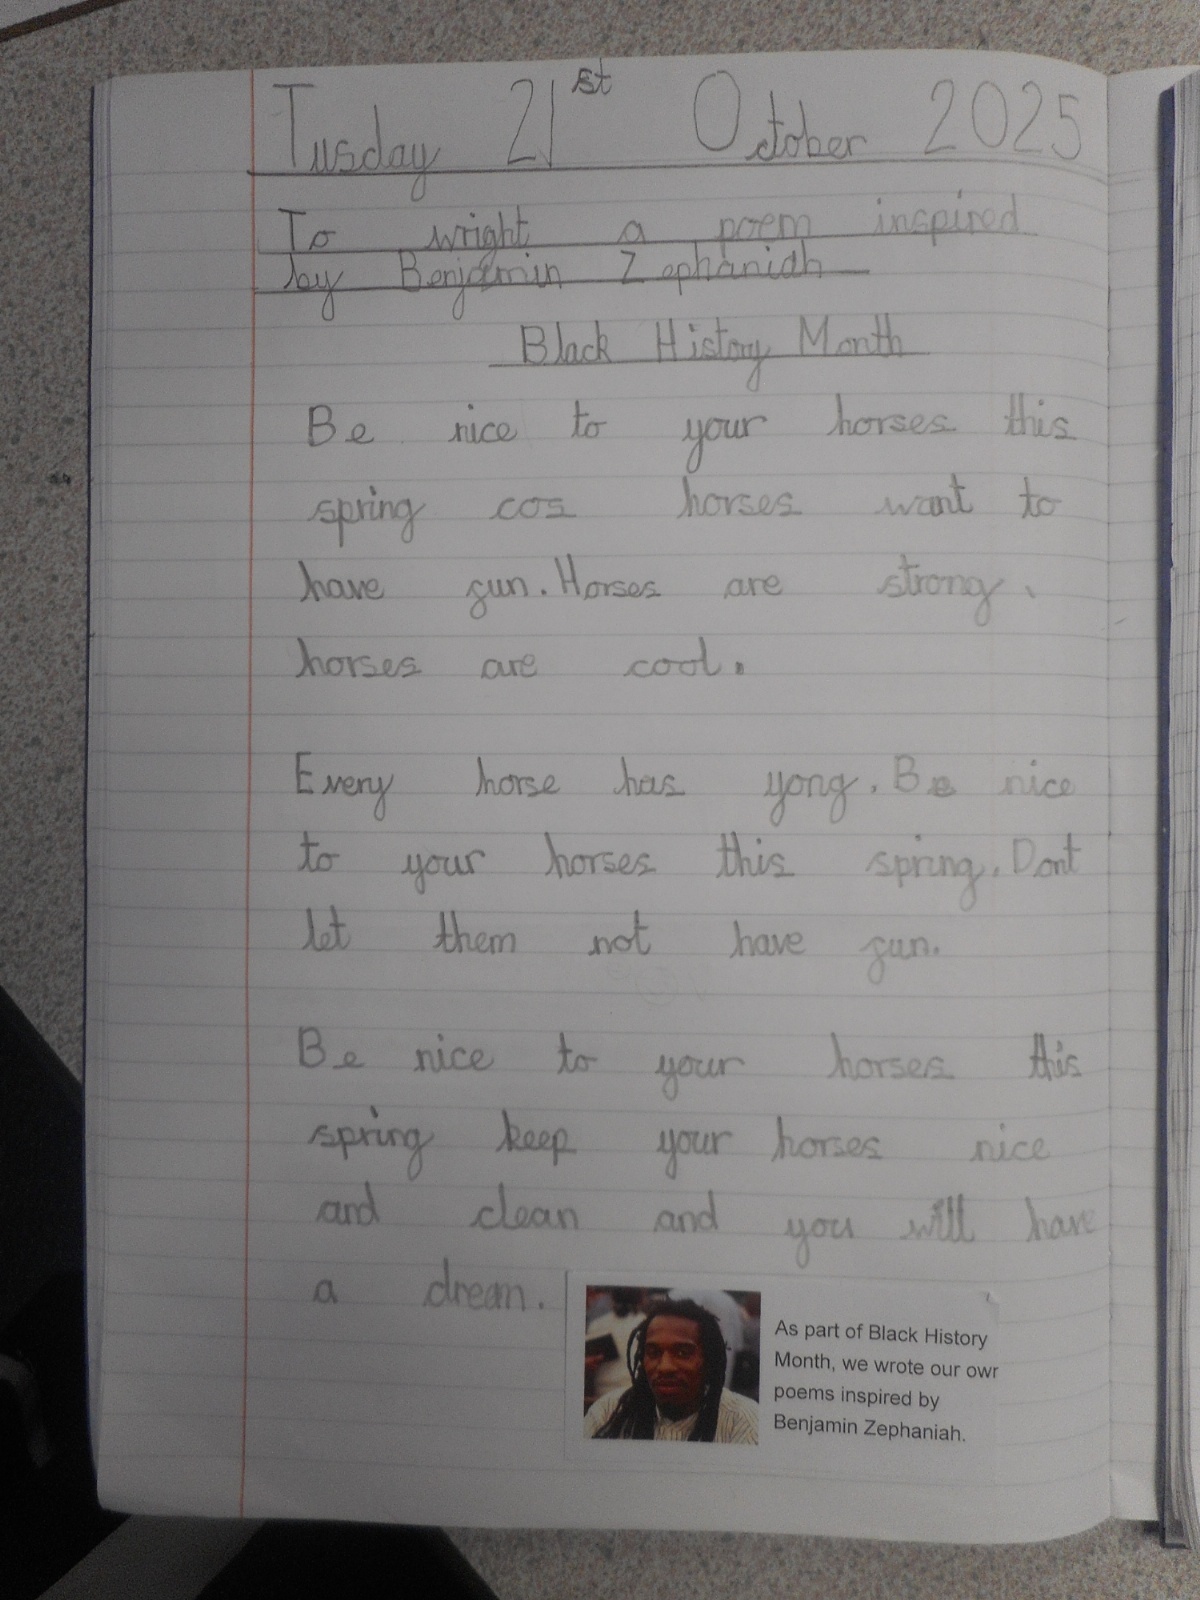 Tusday 21st October 2025
To wright a poem inspired
by Benjamin Zephaniah
Black History Month
Be nice to your horses this
spring cos horses want to
have fun. Horses are strong.
horses are cool.
Every horse has yong. Be nice
to your horses this spring. Dont
let them not have fun.
Be nice to your horses this
spring keep your horses nice
and clean and you will have
a dream.
As part of Black History
Month, we wrote our own
poems inspired by
Benjamin Zephaniah.